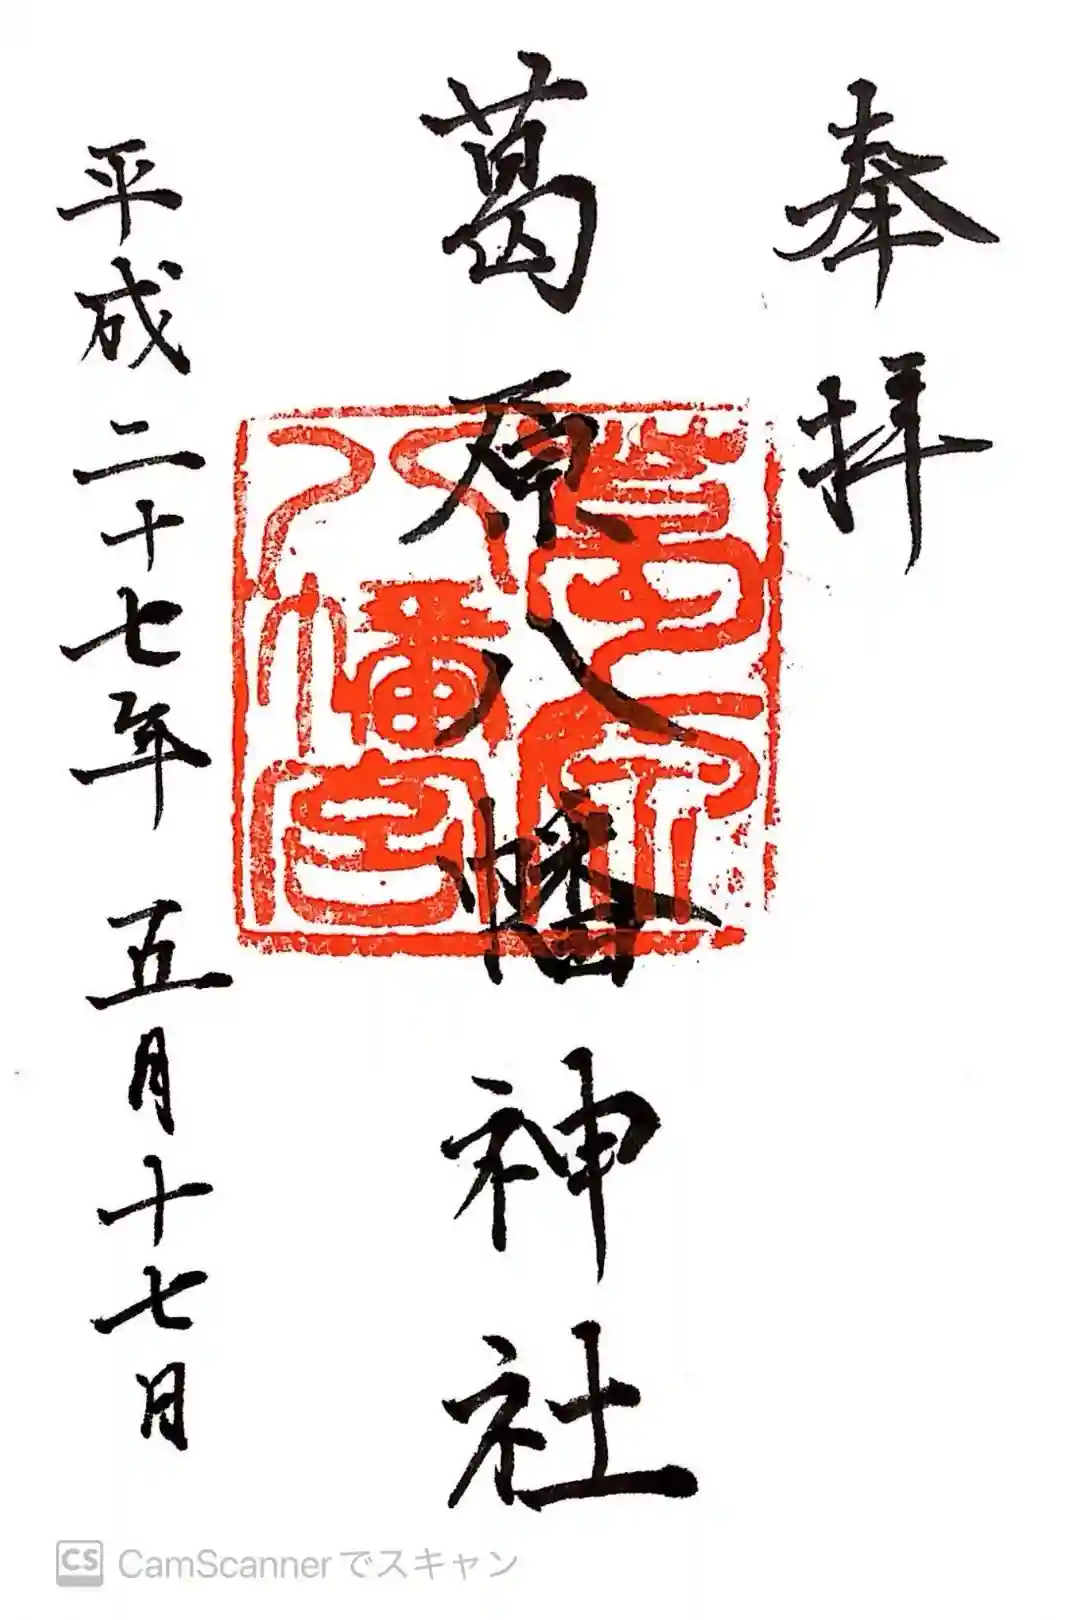 奉拝
葛原八幡神社
葛原八幡宮
平成二十七年 五月十七日
CS CamScannerでスキャン